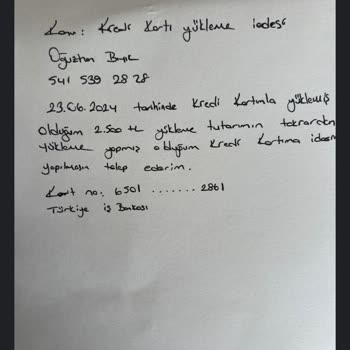 Konu: Kredi Kartı yükleme iadesi
Oğuzhan
541 539 28 28
23.06.2024 tarihinde Kredi Kartımla yüklemiş
olduğum 2.500 TL yükleme tutarının tekrardan
yükleme yapmış olduğum Kredi Kartıma iadesi
yapılmasını talep ederim.
Kart no: 6501 ....... 2861
Türkiye iş Bankası